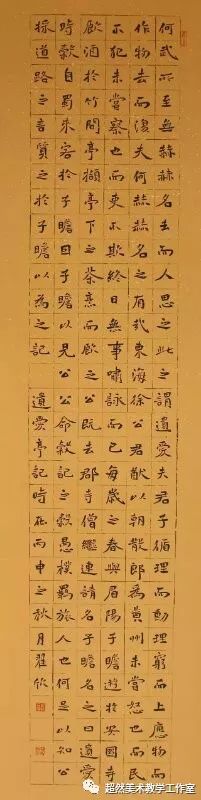 何武所至無赫赫名去而人思之此之謂遺愛夫君子循理而動理窮而止應物而
作物去而復夫何赫赫名之有哉東海徐公君猷以朝散郎為黃州未嘗怒也而民
不犯未嘗察也而吏不欺終日無事嘯詠而已每歲之春與眉陽子瞻遊於安國寺
飲酒於竹間亭擷亭下之茶烹而飲之公既去郡寺僧繼連請名子瞻名之曰遺愛
時穀自蜀來客於子瞻因子瞻以見公公命穀記之穀愚樸羈旅人也何足以知公
採道路之言質之於子瞻以為之記 遺愛亭記時在丙申之秋月翟欽
超然美术教学工作室